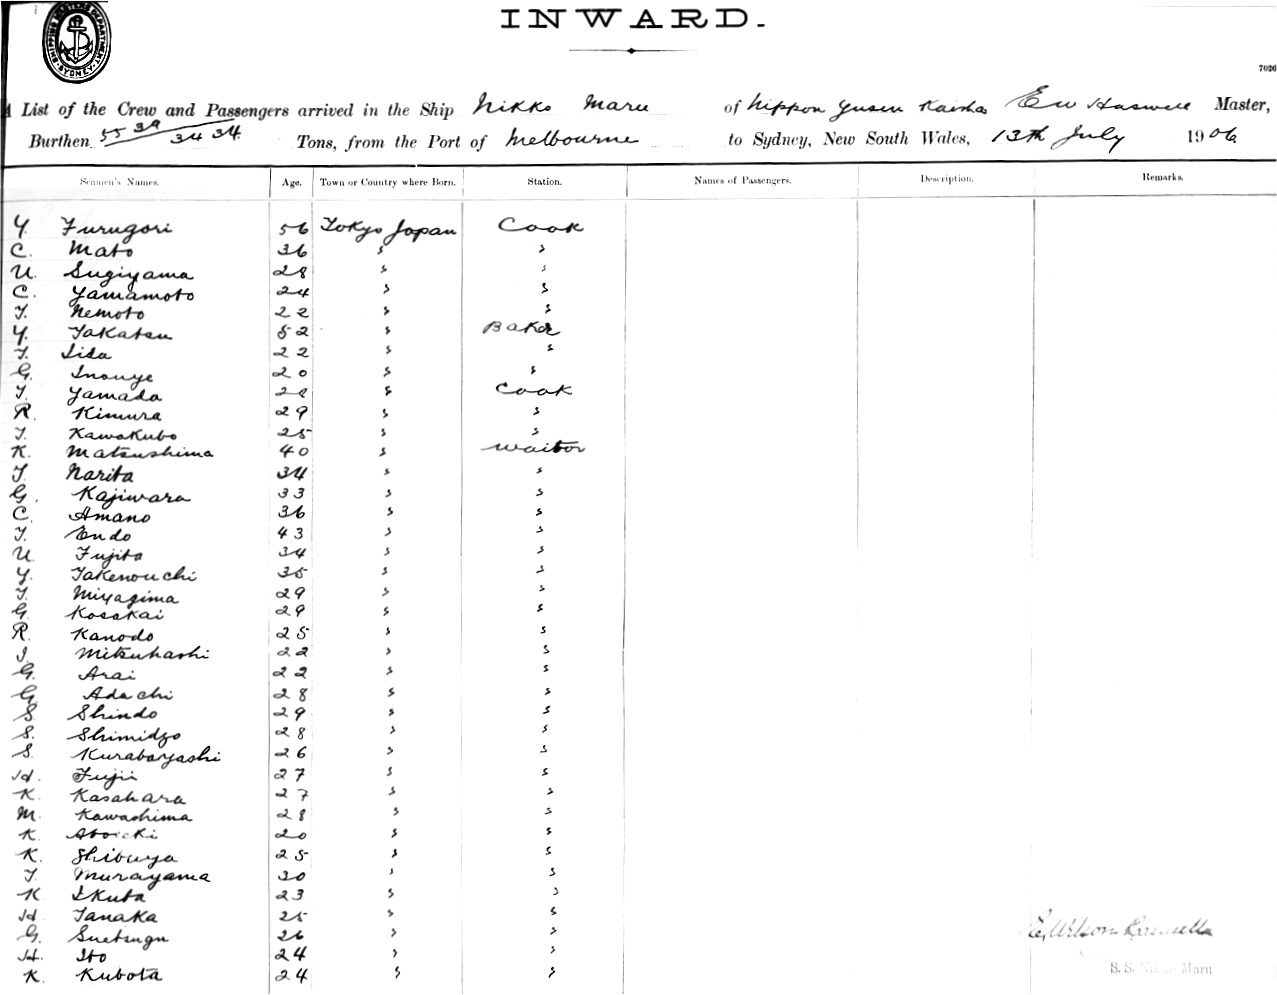 SHIPPING MASTERS DEPARTMENT SYDNEY
INWARD.
7026
A List of the Crew and Passengers arrived in the Ship Nikko Maru of Nippon Yusen Kaisha E W Haswell Master,
Burthen 5539 3434 Tons, from the Port of Melbourne to Sydney, New South Wales, 13th July 1906
Seamen's Names. Age. Town or Country where Born. Station. Names of Passengers. Description. Remarks.
Y. Furugori 56 Tokyo Japan Cook
C. Mato 36 " "
U. Sugiyama 28 " "
C. Yamamoto 24 " "
T. Nemoto 22 " "
Y. Takatsu 52 " Baker
T. Iida 22 " "
G. Inouye 20 " "
T. Yamada 28 " Cook
R. Kimura 29 " "
T. Kawakubo 25 " "
K. Matsushima 40 " Waitor
T. Narita 34 " "
G. Kajiwara 33 " "
C. Amano 36 " "
T. Endo 43 " "
U. Fujita 34 " "
Y. Takenouchi 35 " "
T. Miyagima 29 " "
G. Kosakai 29 " "
R. Kanodo 25 " "
I. Mitsuhashi 22 " "
G. Arai 22 " "
G. Adachi 28 " "
S. Shindo 29 " "
S. Shimidzo 28 " "
S. Kurabayashi 26 " "
H. Fujii 27 " "
K. Kasahara 27 " "
M. Kawashima 28 " "
K. 20 " "
K. Shibuya 25 " "
T. Murayama 30 " "
K. Ikuta 23 " "
H. Tanaka 25 " "
G. Suetsugu 26 " "
H. Ito 24 " "
K. Kubota 24 " "
E. Wilson Haswell
S. S. Nikko Maru